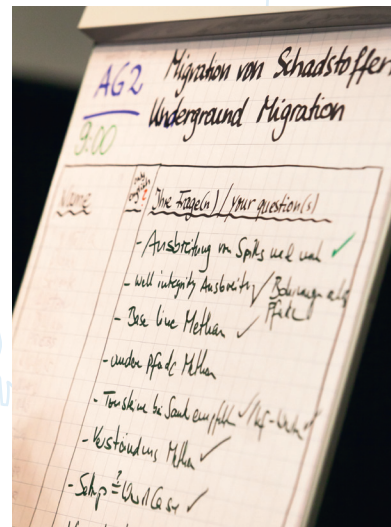 AG2 Migration von Schadstoffen
9:00 Underground Migration
Name
Ihre Frage(n) / your question(s)
- Ausbreitung von Spills und ✓
- well integrity Ausbreitung / Bohrungen als
Pfade
- Base line Methan ✓
- andere Pfade Methan
- Tonsteine bei ✓
- Verständnis Methan ✓
- Setups = Worst Case ✓